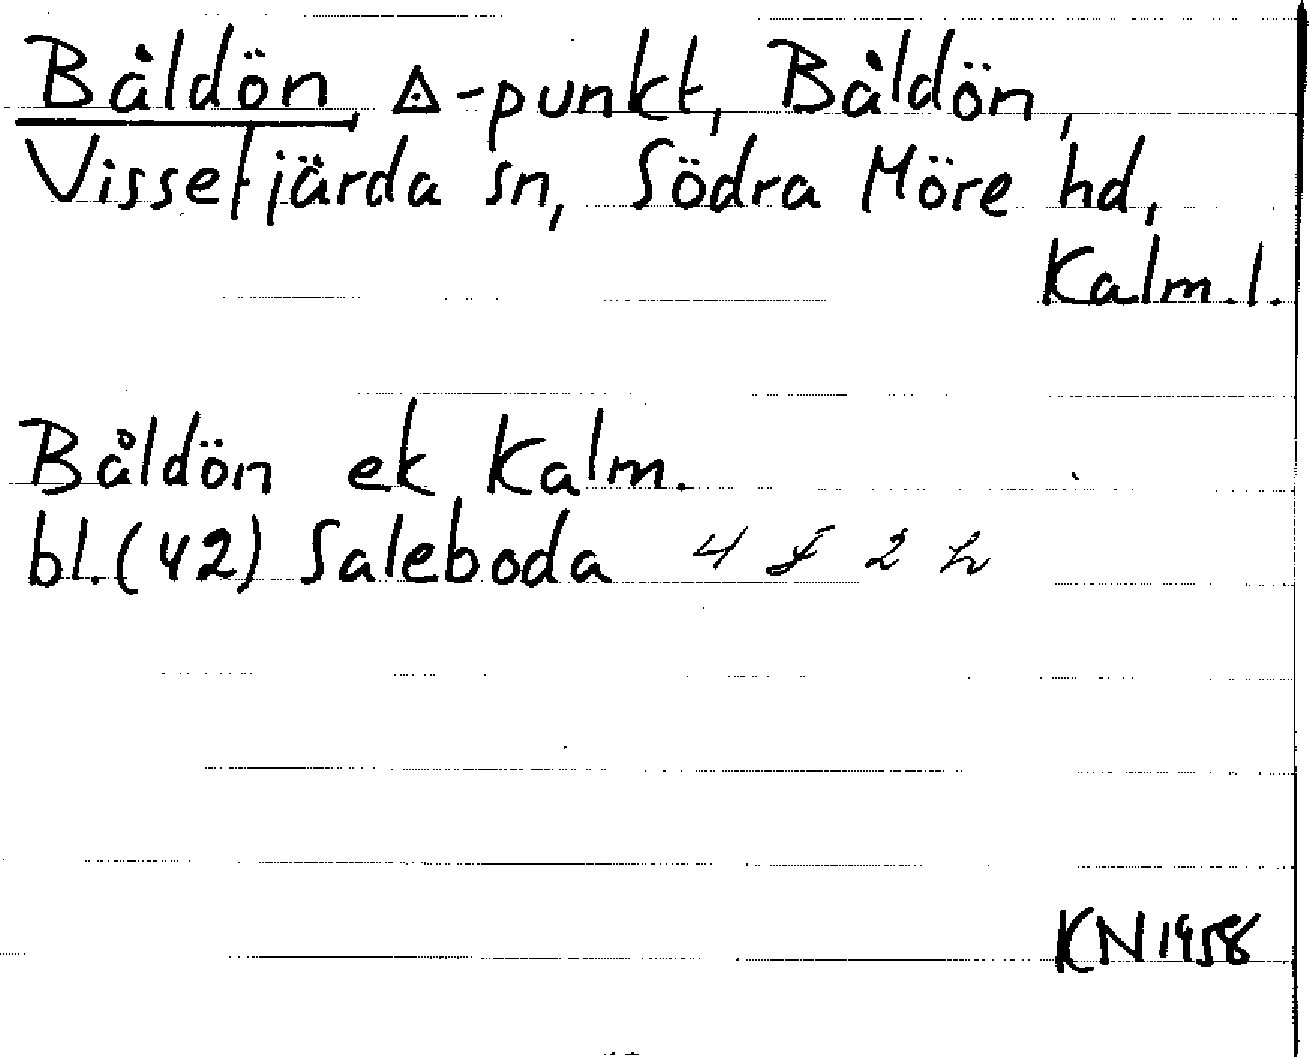 Båldön △-punkt, Båldön,
Vissefjärda sn, Södra Möre hd,
Kalm. l.
Båldön ek Kalm.
bl. (42) Saleboda 4 F 2 h
KN 1958